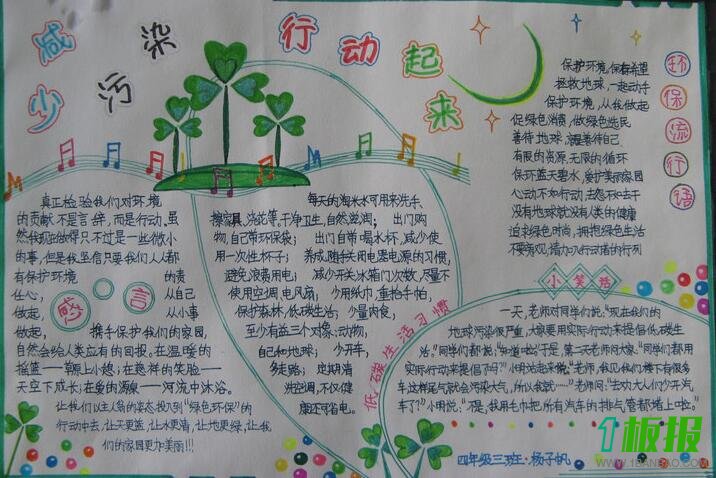 减少污染
行动起来
真正检验我们对环境
的贡献不是言辞，而是行动。虽
然我现在做得只不过是一些微小
的事，但是我坚信只要我们人人都
有保护环境的责
任心，从自己
做起，从小事
做起，携手保护我们的家园，
自然会给人类应有的回报。在温暖的
摇篮——草原上小憩；在慈祥的笑脸——
天空下成长；在爱的源泉——河流中沐浴。
让我们以主人翁的姿态投入到“绿色环保”的
行动中去，让天更蓝，让水更清，让地更绿，让我
们的家园更加美丽!!!
感言
每天的淘米水可用来洗手、
擦家具、浇花等，干净卫生，自然滋润；出门购
物，自己带环保袋；出门自带喝水杯，减少使
用一次性杯子；养成随手关闭电器电源的习惯，
避免浪费用电；减少开关冰箱门次数，尽量不
使用空调、电风扇；少用纸巾，重拾手帕，
保护森林，低碳生活；少量肉食，
至少有益三个对象：动物，
自己和地球；少开车，
多走路；定期清
洗空调，不仅健
康还可省电。
低碳生活习惯
环保流行语
保护环境，保存希望
拯救地球，一起动手
保护环境，从我做起
促绿色消费，做绿色选民
善待地球，善待自己
有限的资源，无限的循环
保环蓝天碧水，爱护美丽家园
心动不如行动，去怨不如去干
没有地球就没有人类的健康
追求绿色时尚，拥抱绿色生活
小笑话
一天，老师对同学们说：“现在我们的
地球污染很严重，大家要用实际行动来提倡低碳生
活。”同学们都说：“知道啦！”于是，第二天老师问大家：“同学们都用
实际行动来提倡了吗？”小明站起来说：“老师，我见我们楼下有很多
车，这样尾气就会污染大气，所以我就……”老师问：“去劝大人们少开汽
车了？”小明说：“不是，我用毛巾把所有汽车的排气管都堵上啦。”
四年级三班：杨子帆
1板报
WWW.1BANBAO.COM